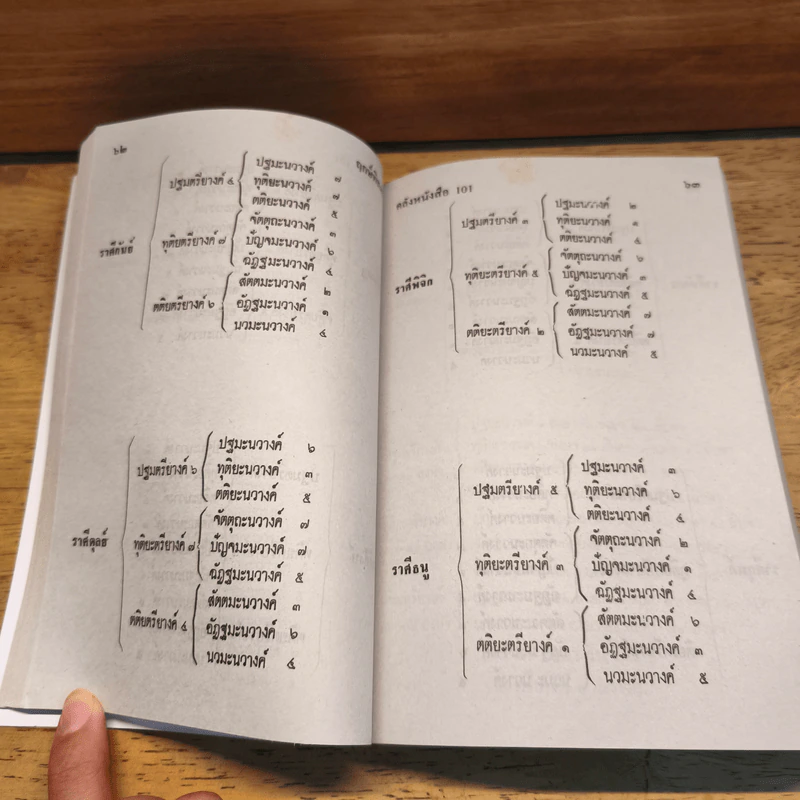 ๖๒
ปฐมะนวางค์ ๗
ปฐมตรียางค์ ๔ ทุติยะนวางค์ ๗
ตติยะนวางค์ ๕
จัตตุถะนวางค์ ๓
ราศีกันย์ ทุติยตรียางค์ ๗ ปัญจมะนวางค์ ๖
ฉัฏฐมะนวางค์ ๔
สัตตมะนวางค์ ๒
ตติยตรียางค์ ๖ อัฏฐมะนวางค์ ๑
นวมะนวางค์ ๔
ปฐมะนวางค์ ๖
ปฐมตรียางค์ ๖ ทุติยะนวางค์ ๓
ตติยะนวางค์ ๕
จัตตุถะนวางค์ ๗
ราศีตุลย์ ทุติยะตรียางค์ ๗ ปัญจมะนวางค์ ๗
ฉัฏฐมะนวางค์ ๕
สัตตมะนวางค์ ๓
ตติยตรียางค์ ๔ อัฏฐมะนวางค์ ๖
นวมะนวางค์ ๔
คลังหนังสือ 101 ๖๓
ปฐมะนวางค์ ๒
ปฐมตรียางค์ ๓ ทุติยะนวางค์ ๑
ตติยะนวางค์ ๔
จัตตุถะนวางค์ ๖
ราศีพิจิก ทุติยะตรียางค์ ๕ ปัญจมะนวางค์ ๓
ฉัฏฐมะนวางค์ ๕
สัตตมะนวางค์ ๗
ตติยะตรียางค์ ๒ อัฏฐมะนวางค์ ๗
นวมะนวางค์ ๕
ปฐมะนวางค์ ๓
ปฐมตรียางค์ ๕ ทุติยะนวางค์ ๖
ตติยะนวางค์ ๔
จัตตุถะนวางค์ ๒
ราศีธนู ทุติยะตรียางค์ ๓ ปัญจมะนวางค์ ๑
ฉัฏฐมะนวางค์ ๔
สัตตมะนวางค์ ๖
ตติยะตรียางค์ ๑ อัฏฐมะนวางค์ ๓
นวมะนวางค์ ๕